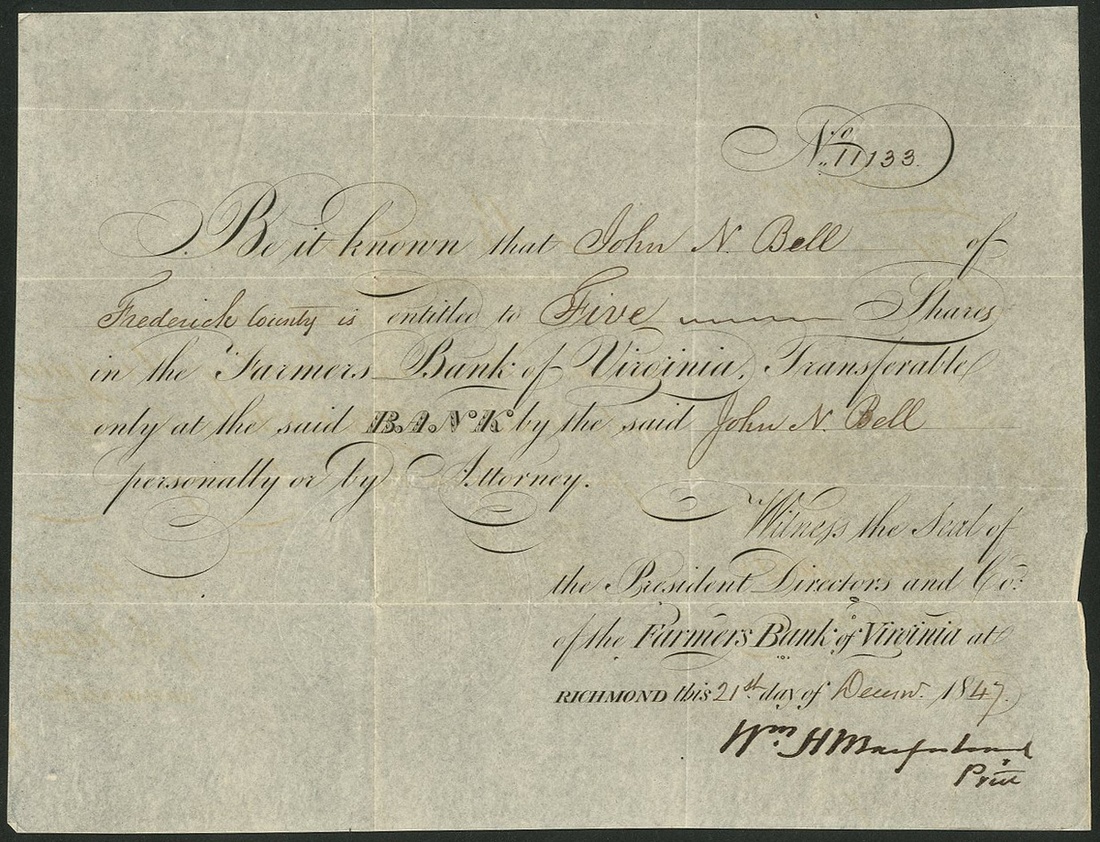 No. 11133
Be it known that John N. Bell of
Frederick County is entitled to Five Shares
in the Farmers Bank of Virginia, Transferable
only at the said BANK by the said John N. Bell
personally or by Attorney.
Witness the Seal of
the President Directors and Co.
of the Farmers Bank of Virginia at
RICHMOND this 21st day of Decemr. 1847.
Wm H Macfarland
Prest